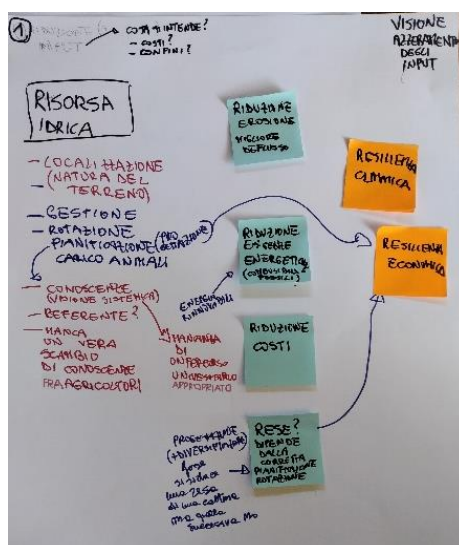 1
COSA SI INTENDE?
- COSTI?
- CONFINI?
VISIONE
AZZERAMENTO
DEGLI
INPUT
RISORSA
IDRICA
- LOCALIZZAZIONE
(NATURA DEL
- TERRENO)
- GESTIONE
- ROTAZIONE
PIANIFICAZIONE
CARICO ANIMALI
- CONOSCENZE
(VISIONE SISTEMICA)
- REFERENTE?
- MANCA
UN VERA
SCAMBIO
DI CONOSCENZE
FRA AGRICOLTORI
MANCANZA
DI
UN PERCORSO
UNIVERSITARIO
APPROPRIATO
ENERGIE
RINNOVABILI
RIDUZIONE
EROSIONE
MIGLIORE
DEFLUSSO
RIDUZIONE
ESIGENZE
ENERGETICHE
(COMBUSTIBILI
FOSSILI)
RIDUZIONE
COSTI
RESE?
DIPENDE
DALLA
CORRETTA
PIANIFICAZIONE
ROTAZIONE
(+DIVERSIFICAZIONE)
forse
si riduce
una resa
di una coltura
ma quella
successiva no
RESILIENZA
CLIMATICA
RESILIENZA
ECONOMICA